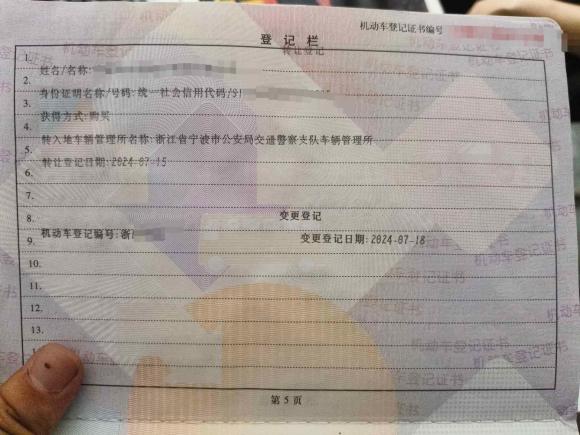 机动车登记证书编号
登记栏
1.
转让登记
2. 姓名/名称:
3. 身份证明名称/号码: 统一社会信用代码/
4. 获得方式: 购买
5. 转入地车辆管理所名称: 浙江省宁波市公安局交通警察支队车辆管理所
6. 转让登记日期: 2024-07-15
7.
8.
变更登记
9. 机动车登记编号: 浙 变更登记日期: 2024-07-18
10.
11.
12.
13.
第 5 页